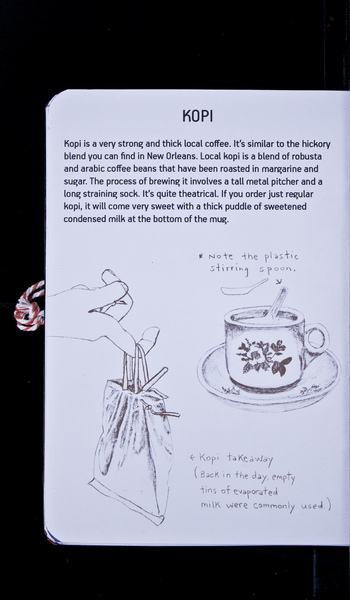 KOPI
Kopi is a very strong and thick local coffee. It's similar to the hickory
blend you can find in New Orleans. Local kopi is a blend of robusta
and arabic coffee beans that have been roasted in margarine and
sugar. The process of brewing it involves a tall metal pitcher and a
long straining sock. It's quite theatrical. If you order just regular
kopi, it will come very sweet with a thick puddle of sweetened
condensed milk at the bottom of the mug.
* Note the plastic
stirring spoon.
← Kopi takeaway
(Back in the day, empty
tins of evaporated
milk were commonly used.)